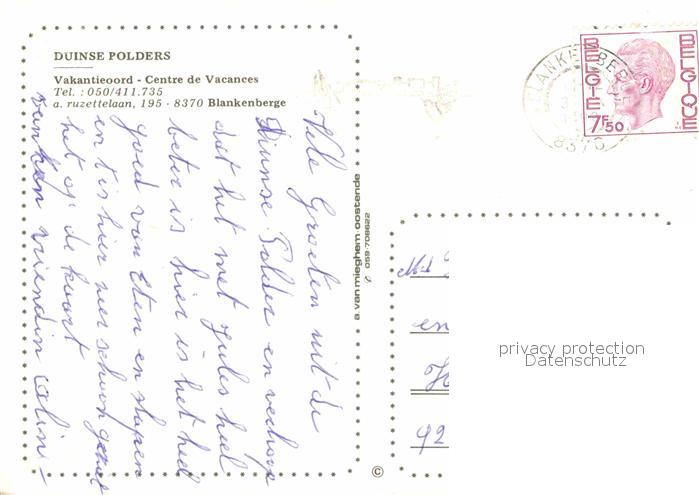 DUINSE POLDERS
Vakantieoord - Centre de Vacances
Tel. : 050/411.735
a. ruzettelaan, 195 - 8370 Blankenberge
Vele Groeten uit de
Duinse Polder en verhoop
dat het met jules heel
beter is hier is het heel
goed van Eten en slapen
en t is hier neer schoon
het op de kaart
van hun vriendin Colin
a. van mieghem oostende
059-708622
©
BLANKENBERGE
8370
BELGIE
BELGIQUE
7F50
en
92
privacy protection
Datenschutz